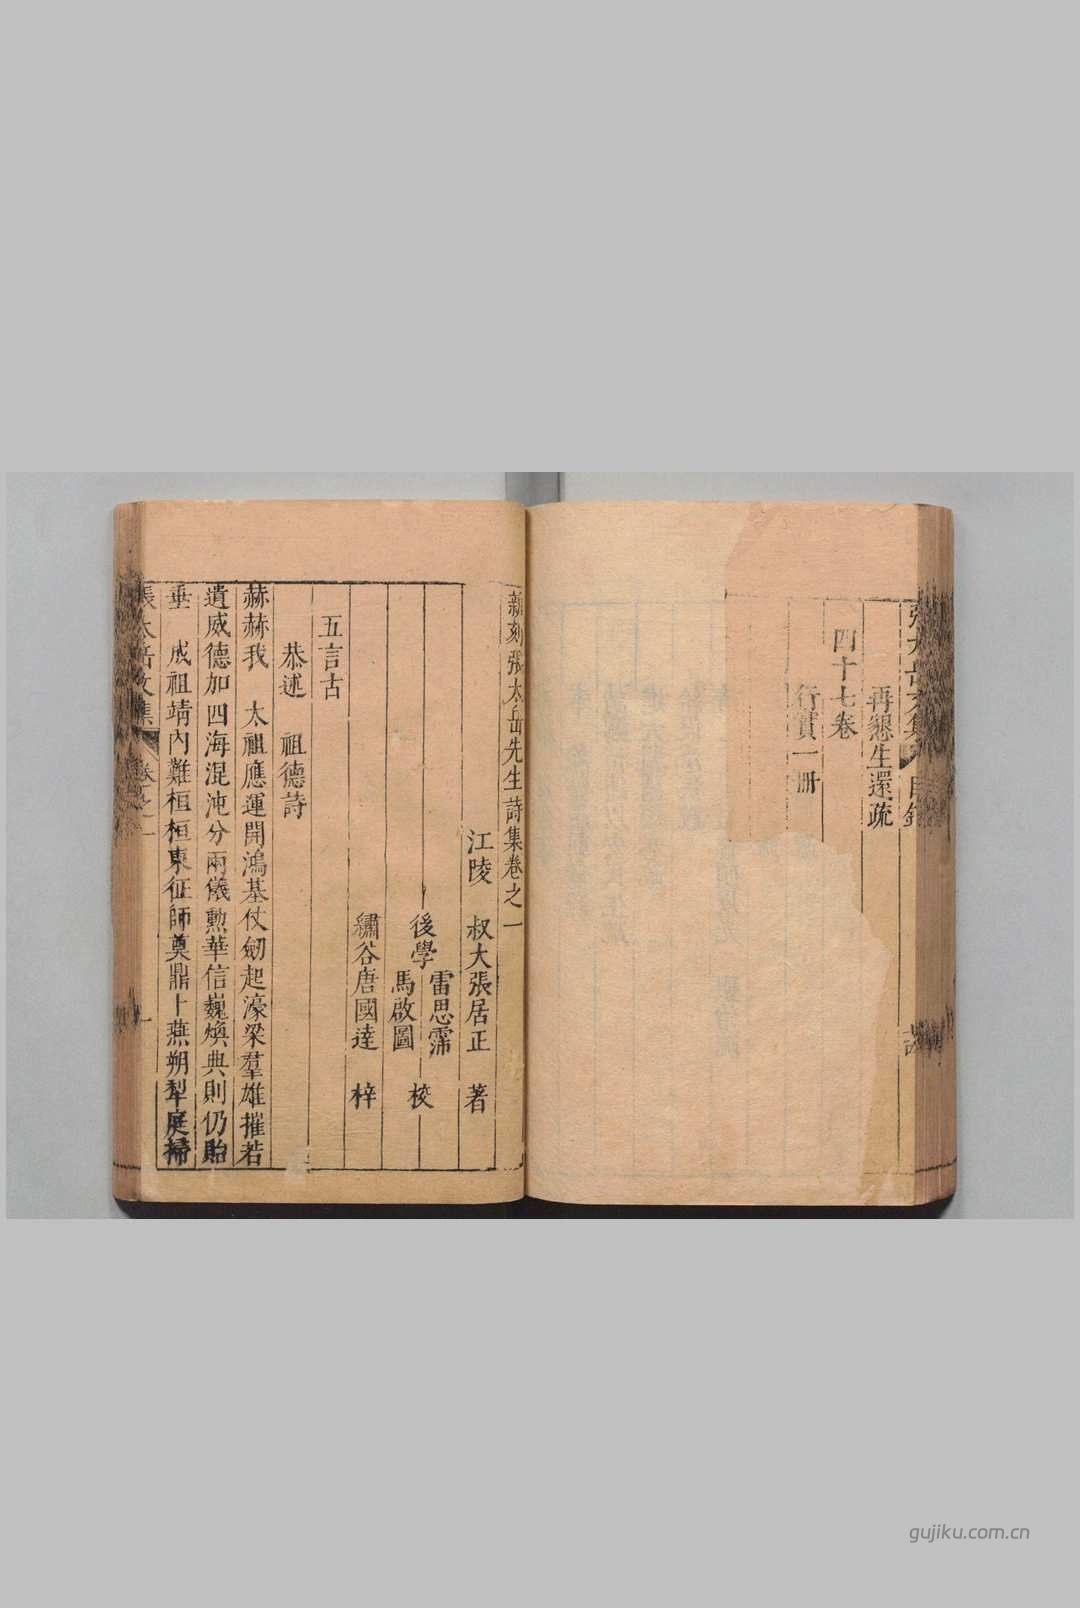 再懇生還疏
四十七卷
行實一冊
新刻張太岳先生詩集卷之一
江陵 叔大張居正 著
後學 雷思霈 馬啟圖 校
繡谷唐國達 梓
五言古
恭述 祖德詩
赫赫我 太祖應運開鴻基仗劒起濠梁羣雄摧若
遺威德加四海混沌分兩儀勲華信巍煥典則仍貽
垂 成祖靖內難桓桓東征師奠鼎卜燕朔犁庭掃
張太岳文集 卷之一 一
gujiku.com.cn